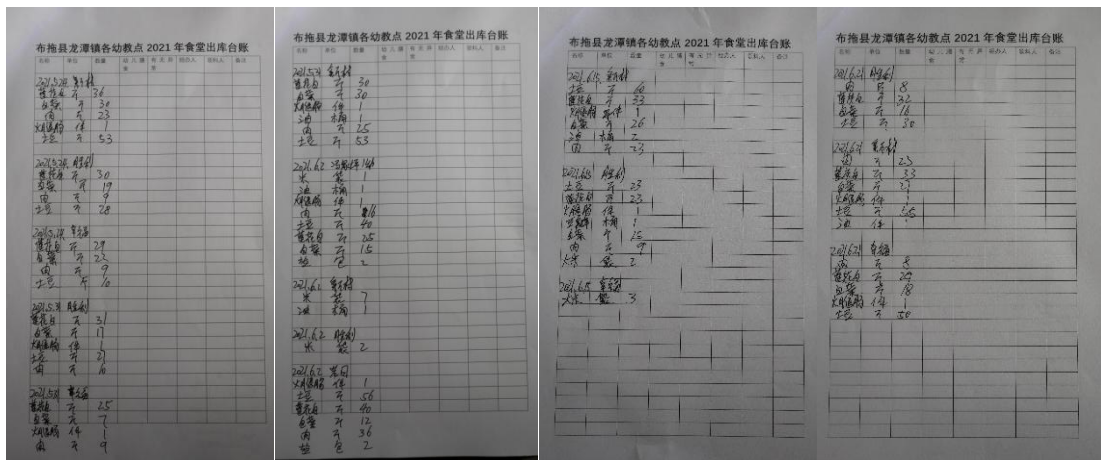 布拖县龙潭镇各幼教点 2021 年食堂出库台账
名称 单位 数量 经办人 领料人 备注
2021.5.24
莲花白 斤 36
白菜 斤 30
肉 斤 23
火腿肠 件 1
土豆 斤 53
2021.5.24 胜利
莲花白 斤 30
白菜 斤 19
肉 斤 9
土豆 斤 28
2021.5.24
莲花白 斤 29
白菜 斤 22
肉 斤 9
土豆 斤 10
2021.5.31 胜利
莲花白 斤 31
白菜 斤 17
火腿肠 件 1
土豆 斤 21
肉 斤 10
2021.5.31
莲花白 斤 25
白菜 斤 7
火腿肠 件 1
肉 斤 9
布拖县龙潭镇各幼教点 2021 年食堂出库台账
名称 单位 数量 经办人 领料人 备注
2021.5.31
莲花白 斤 30
白菜 斤 30
火腿肠 件 1
油 桶 1
肉 斤 25
土豆 斤 53
2021.6.2
米 袋 1
油 桶 1
火腿肠 件 1
肉 斤 16
土豆 斤 40
莲花白 斤 25
白菜 斤 15
盐 包 2
2021.6.2
米 袋 7
油 桶 1
2021.6.2 胜利
米 袋 2
2021.6.2
火腿肠 件 1
土豆 斤 56
莲花白 斤 40
白菜 斤 12
肉 斤 36
盐 包 2
布拖县龙潭镇各幼教点 2021 年食堂出库台账
名称 单位 数量 经办人 领料人 备注
2021.6.15
土豆 斤 60
莲花白 斤 33
火腿肠 件 1
白菜 斤 26
油 桶 2
肉 斤 23
胜利
土豆 斤 23
莲花白 斤 23
火腿肠 件 1
桶 1
白菜 斤 15
肉 斤 9
大米 袋 2
2021.6.15
大米 袋 3
布拖县龙潭镇各幼教点 2021 年食堂出库台账
名称 单位 数量 经办人 领料人 备注
2021.6.21 胜利
肉 斤 8
莲花白 斤 32
白菜 斤 16
土豆 斤 30
2021.6.21
肉 斤 23
莲花白 斤 33
白菜 斤
火腿肠 件 1
土豆 斤 55
油 件
2021.6.21
肉 斤 8
莲花白 斤
白菜 斤 18
火腿肠 件 1
土豆 斤 50